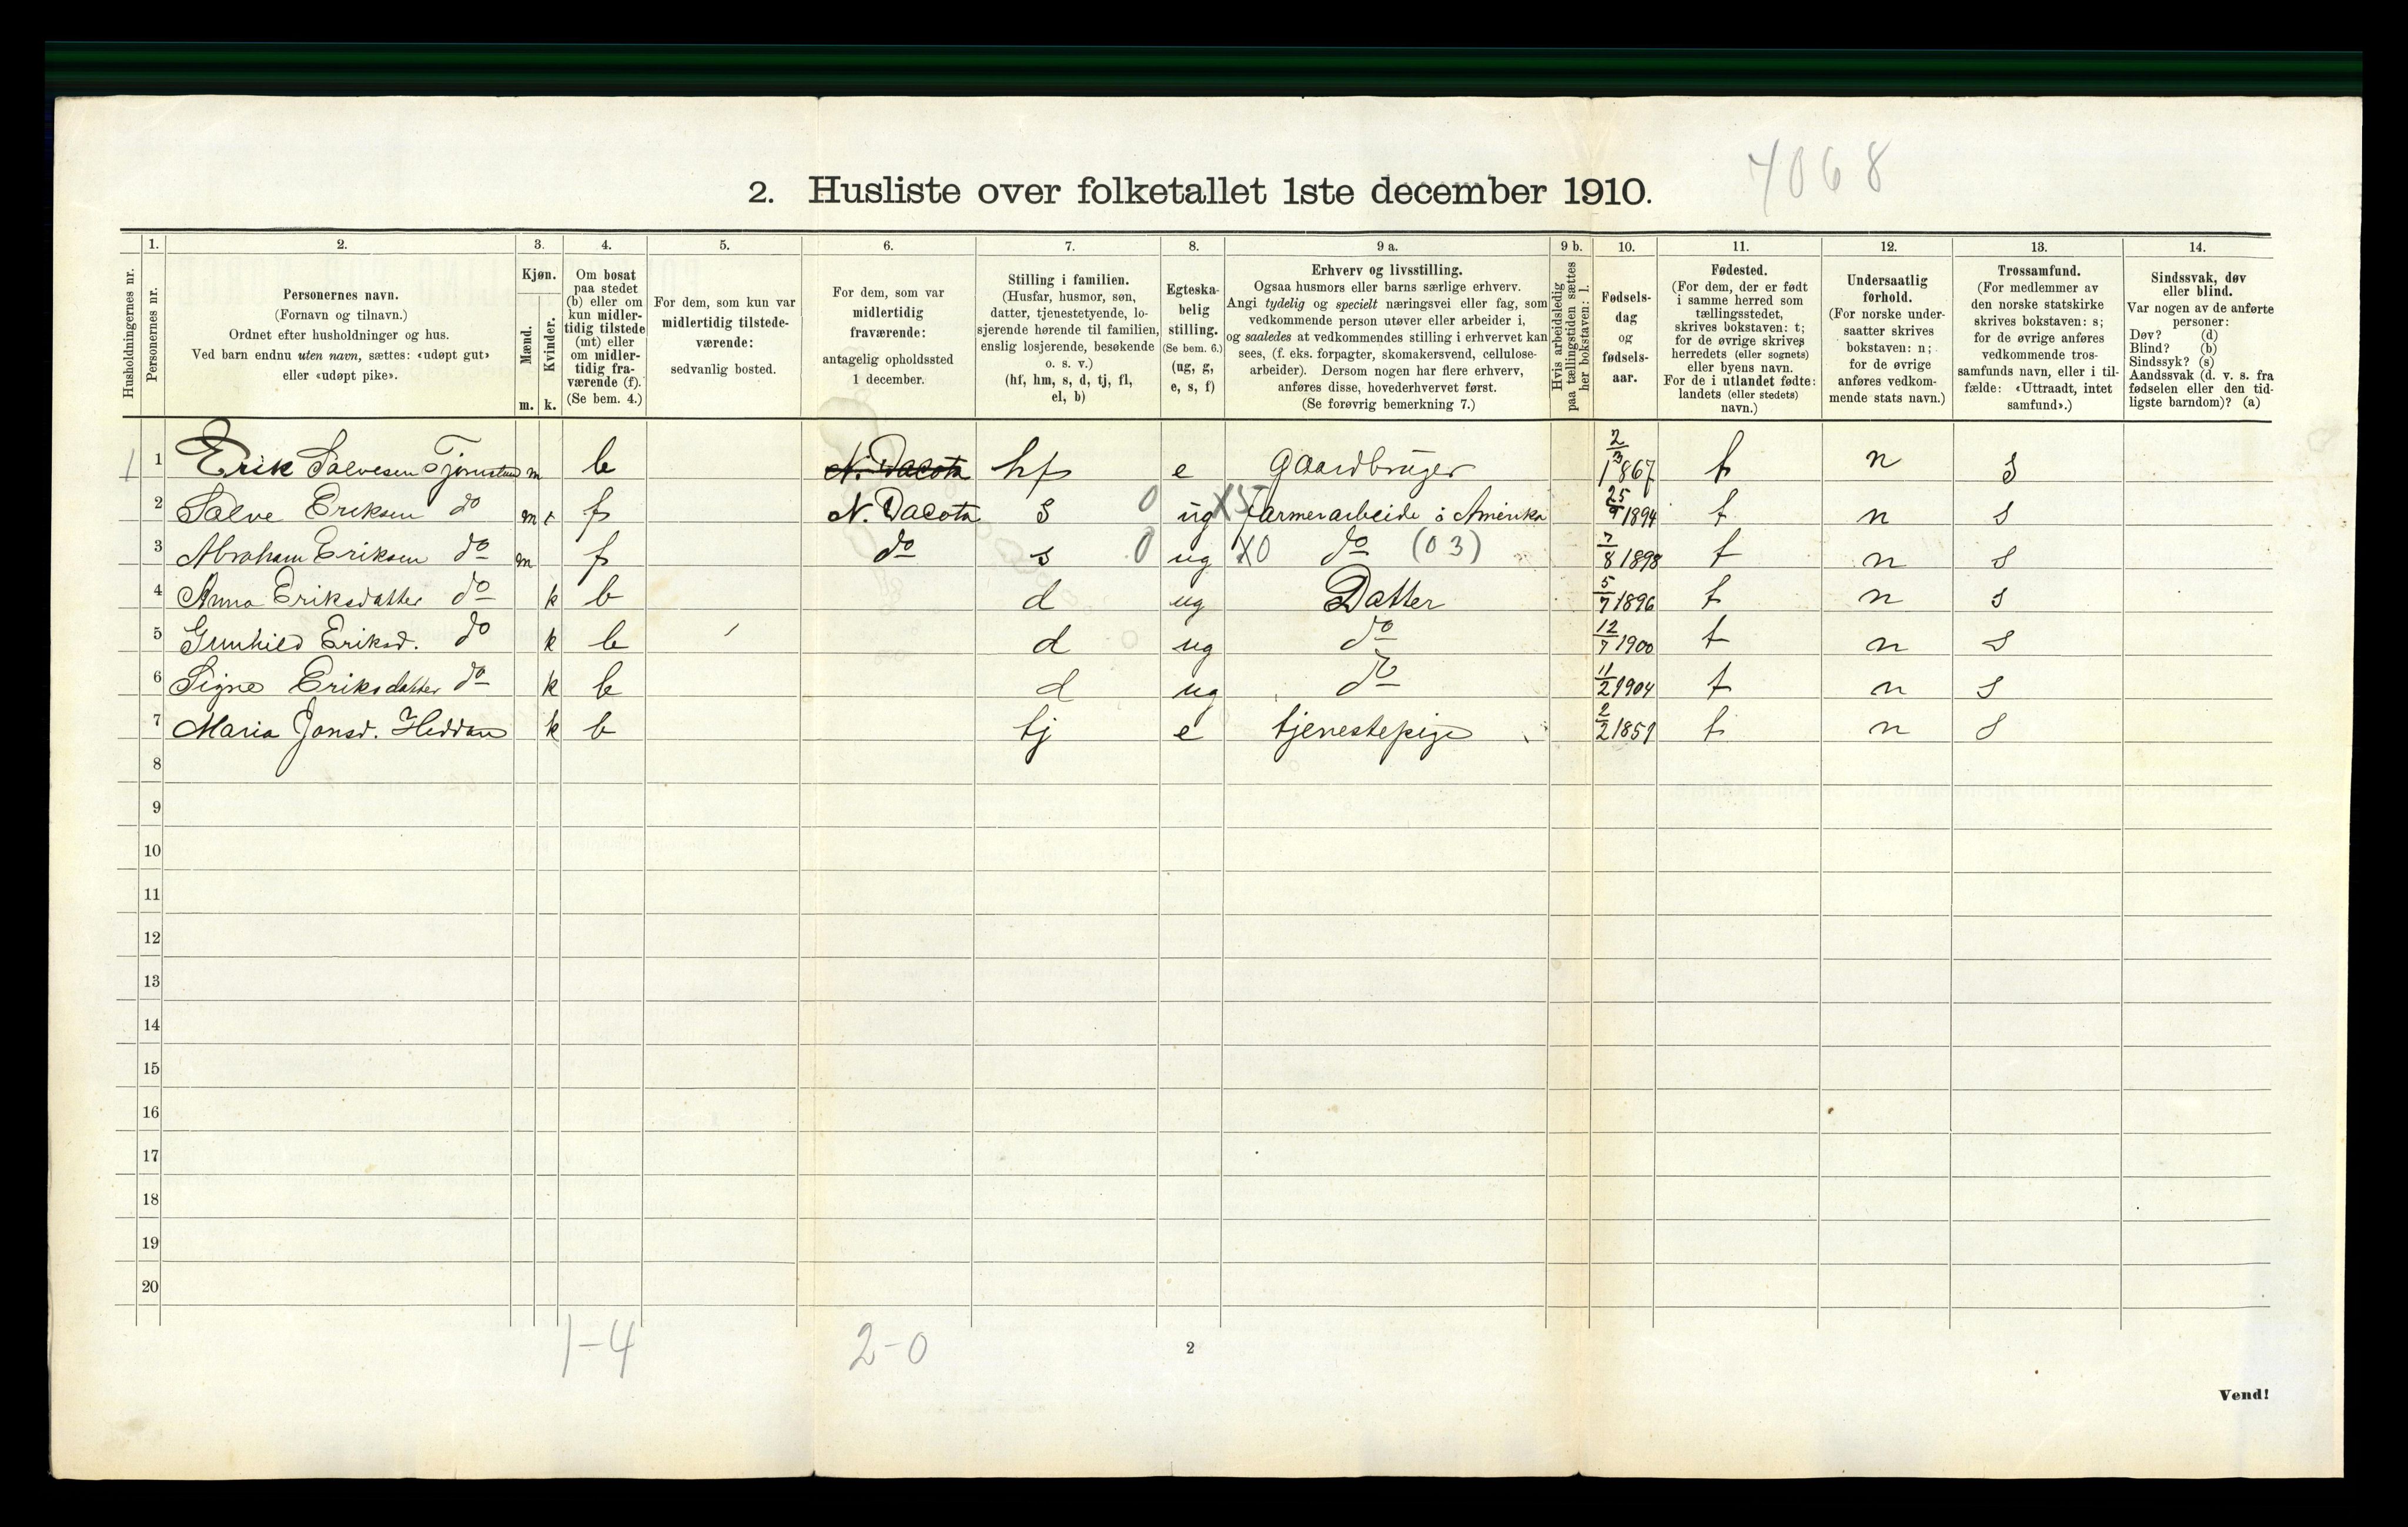 4068
2. Husliste over folketallet 1ste december 1910.
Husholdningernes nr.
1.
Personernes nr.
2.
Personernes navn.
(Fornavn og tilnavn.)
Ordnet efter husholdninger og hus.
Ved barn endnu uten navn, sættes: «udøpt gut»
eller «udøpt pike».
3.
Kjøn.
Mænd.
Kvinder.
m. k.
4.
Om bosat
paa stedet
(b) eller om
kun midler-
tidig tilstede
(mt) eller
om midler-
tidig fra-
værende (f).
(Se bem. 4.)
5.
For dem, som kun var
midlertidig tilstede-
værende:
sedvanlig bosted.
6.
For dem, som var
midlertidig
fraværende:
antagelig opholdssted
1 december.
7.
Stilling i familien.
(Husfar, husmor, søn,
datter, tjenestetyende, lo-
sjerende hørende til familien,
enslig losjerende, besøkende
o. s. v.)
(hf, hm, s, d, tj, fl,
el, b)
8.
Egteska-
belig
stilling.
(Se bem. 6.)
(ug, g,
e, s, f)
9 a.
Erhverv og livsstilling.
Ogsaa husmors eller barns særlige erhverv.
Angi tydelig og specielt næringsvei eller fag, som
vedkommende person utøver eller arbeider i,
og saaledes at vedkommendes stilling i erhvervet kan
sees, (f. eks. forpagter, skomakersvend, cellulose-
arbeider). Dersom nogen har flere erhverv,
anføres disse, hovederhvervet først.
(Se forøvrig bemerkning 7.)
9 b.
Hvis arbeidsledig
paa tællingstiden sættes
her bokstaven: l.
10.
Fødsels-
dag
og
fødsels-
aar.
11.
Fødested.
(For dem, der er født
i samme herred som
tællingsstedet,
skrives bokstaven: t;
for de øvrige skrives
herredets (eller sognets)
eller byens navn.
For de i utlandet fødte:
landets (eller stedets)
navn.)
12.
Undersaatlig
forhold.
(For norske under-
saatter skrives
bokstaven: n;
for de øvrige
anføres vedkom-
mende stats navn.)
13.
Trossamfund.
(For medlemmer av
den norske statskirke
skrives bokstaven: s;
for de øvrige anføres
vedkommende tros-
samfunds navn, eller i til-
fælde: «Uttraadt, intet
samfund».)
14.
Sindssvak, døv
eller blind.
Var nogen av de anførte
personer:
Døv? (d)
Blind? (b)
Sindssyk? (s)
Aandssvak (d. v. s. fra
fødselen eller den tid-
ligste barndom)? (a)
1 1 Erik Salvesen m b N. Dacota hf e Gaardbruger 2/3 1867 t n s
2 Salve Eriksen do m f N. Dacota s 0 ug X5 farmerarbeide i Amerika 25/9 1894 t n s
3 Abraham Eriksen do m f do s 0 ug X0 do (03) 7/8 1898 t n s
4 Anna Eriksdatter do k b d ug Datter 5/7 1896 t n s
5 Gunhild Eriksd. do k b d ug do 12/7 1900 t n s
6 Signe Eriksdatter do k b d ug do 11/2 1904 t n s
7 Maria Jonsd. Heddan k b tj e tjenestepige 2/2 1851 t n s
8
9
10
11
12
13
14
15
16
17
18
19
20
1-4 2-0
2
Vend!